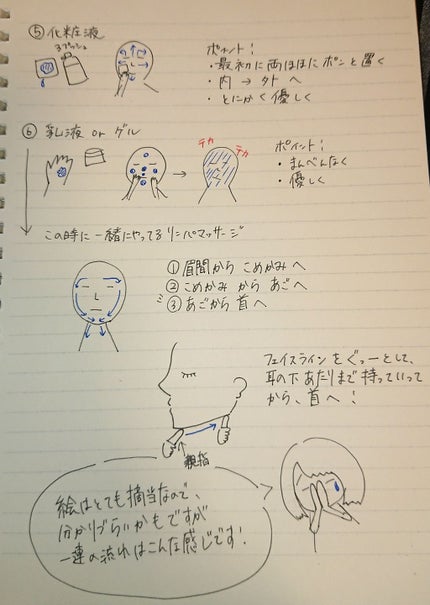 ⑤ 化粧液
3プッシュ
ポイント!
・最初に両ほほにポンと置く
・内→外へ
・とにかく優しく
⑥ 乳液 or ゲル
テカ テカ
ポイント!
・まんべんなく
・優しく
この時に一緒にやってるリンパマッサージ
① 眉間から こめかみへ
② こめかみ から あごへ
③ あごから 首へ
フェイスラインをぐっーとして、
耳の下あたりまで持っていって
から、首へ!
親指
絵はとても摘当なので、
分かりづらいかもですが
一連の流れはこんな感じです!